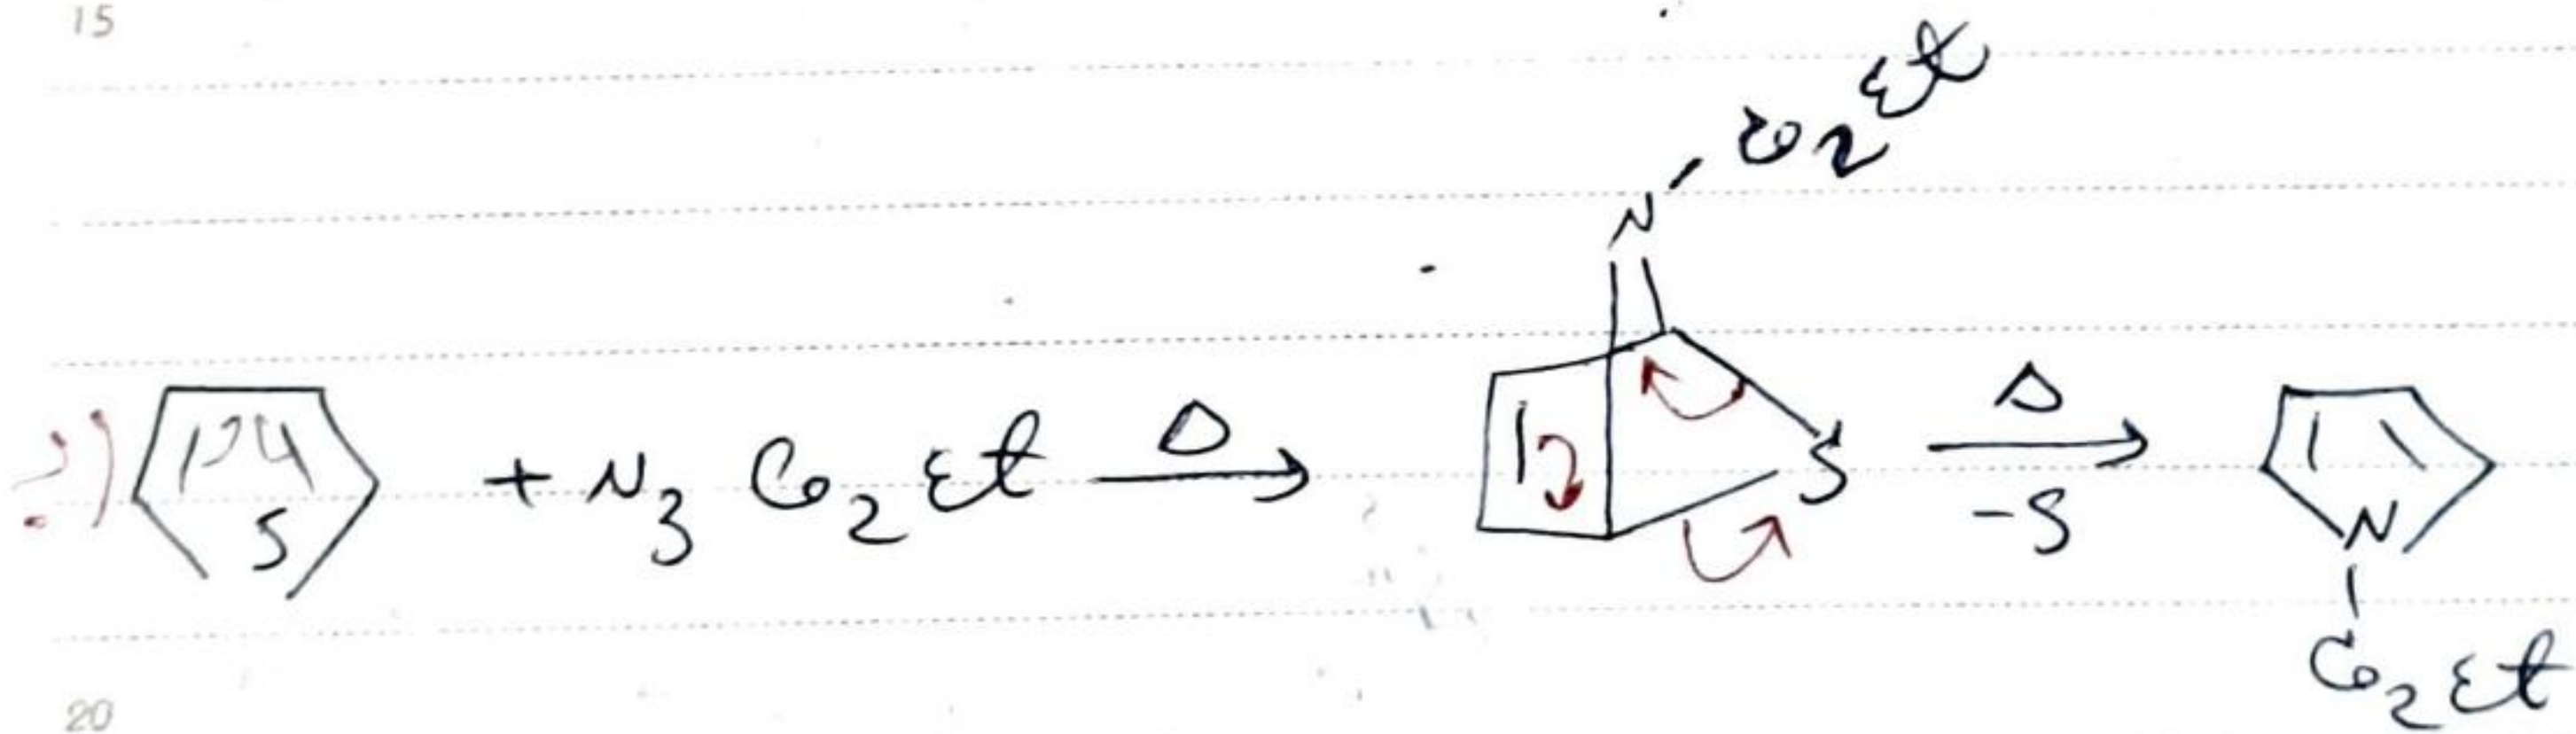 15
N - CO2Et
S + N3 CO2Et Δ→ S Δ→ -S N
CO2Et
20